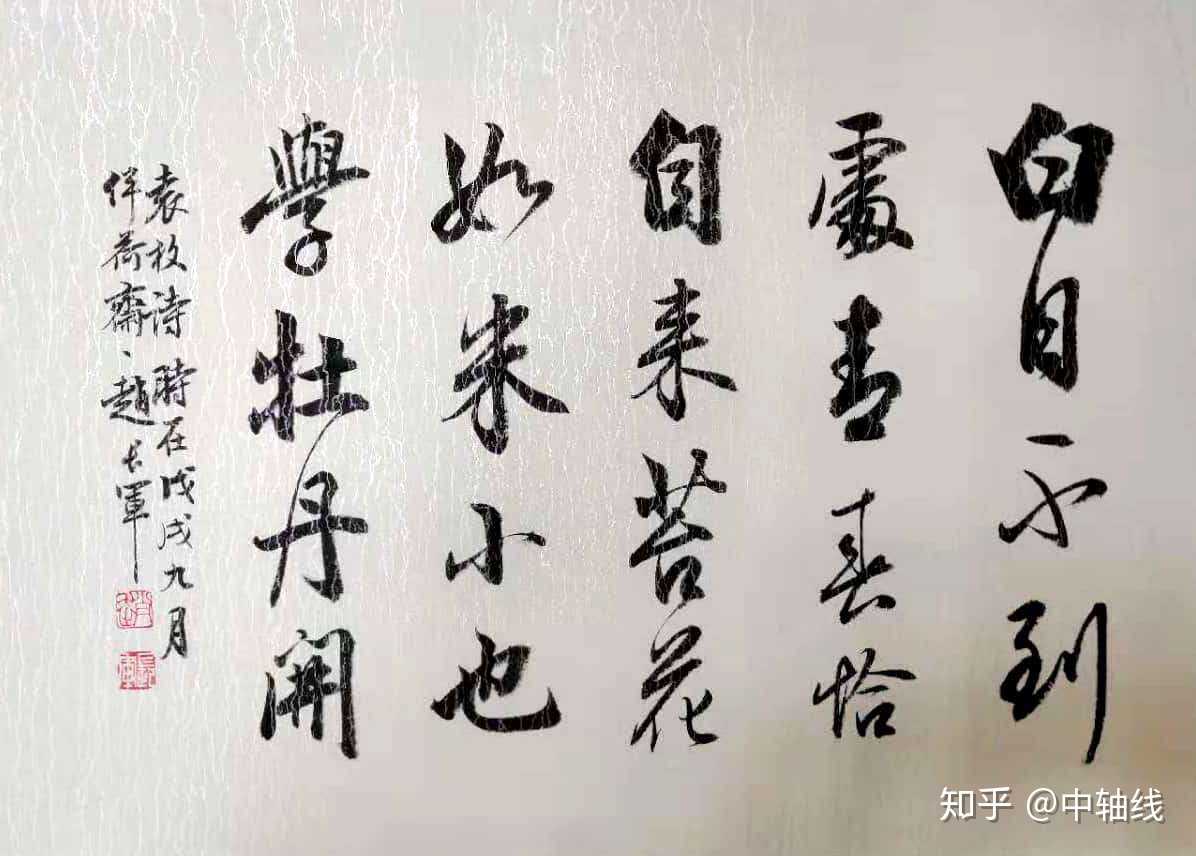 白日不到
處青春恰
自来苔花
如米小也
學牡丹開
袁枚诗時在戊戌九月
伴荷齋趙长軍
知乎 @中轴线